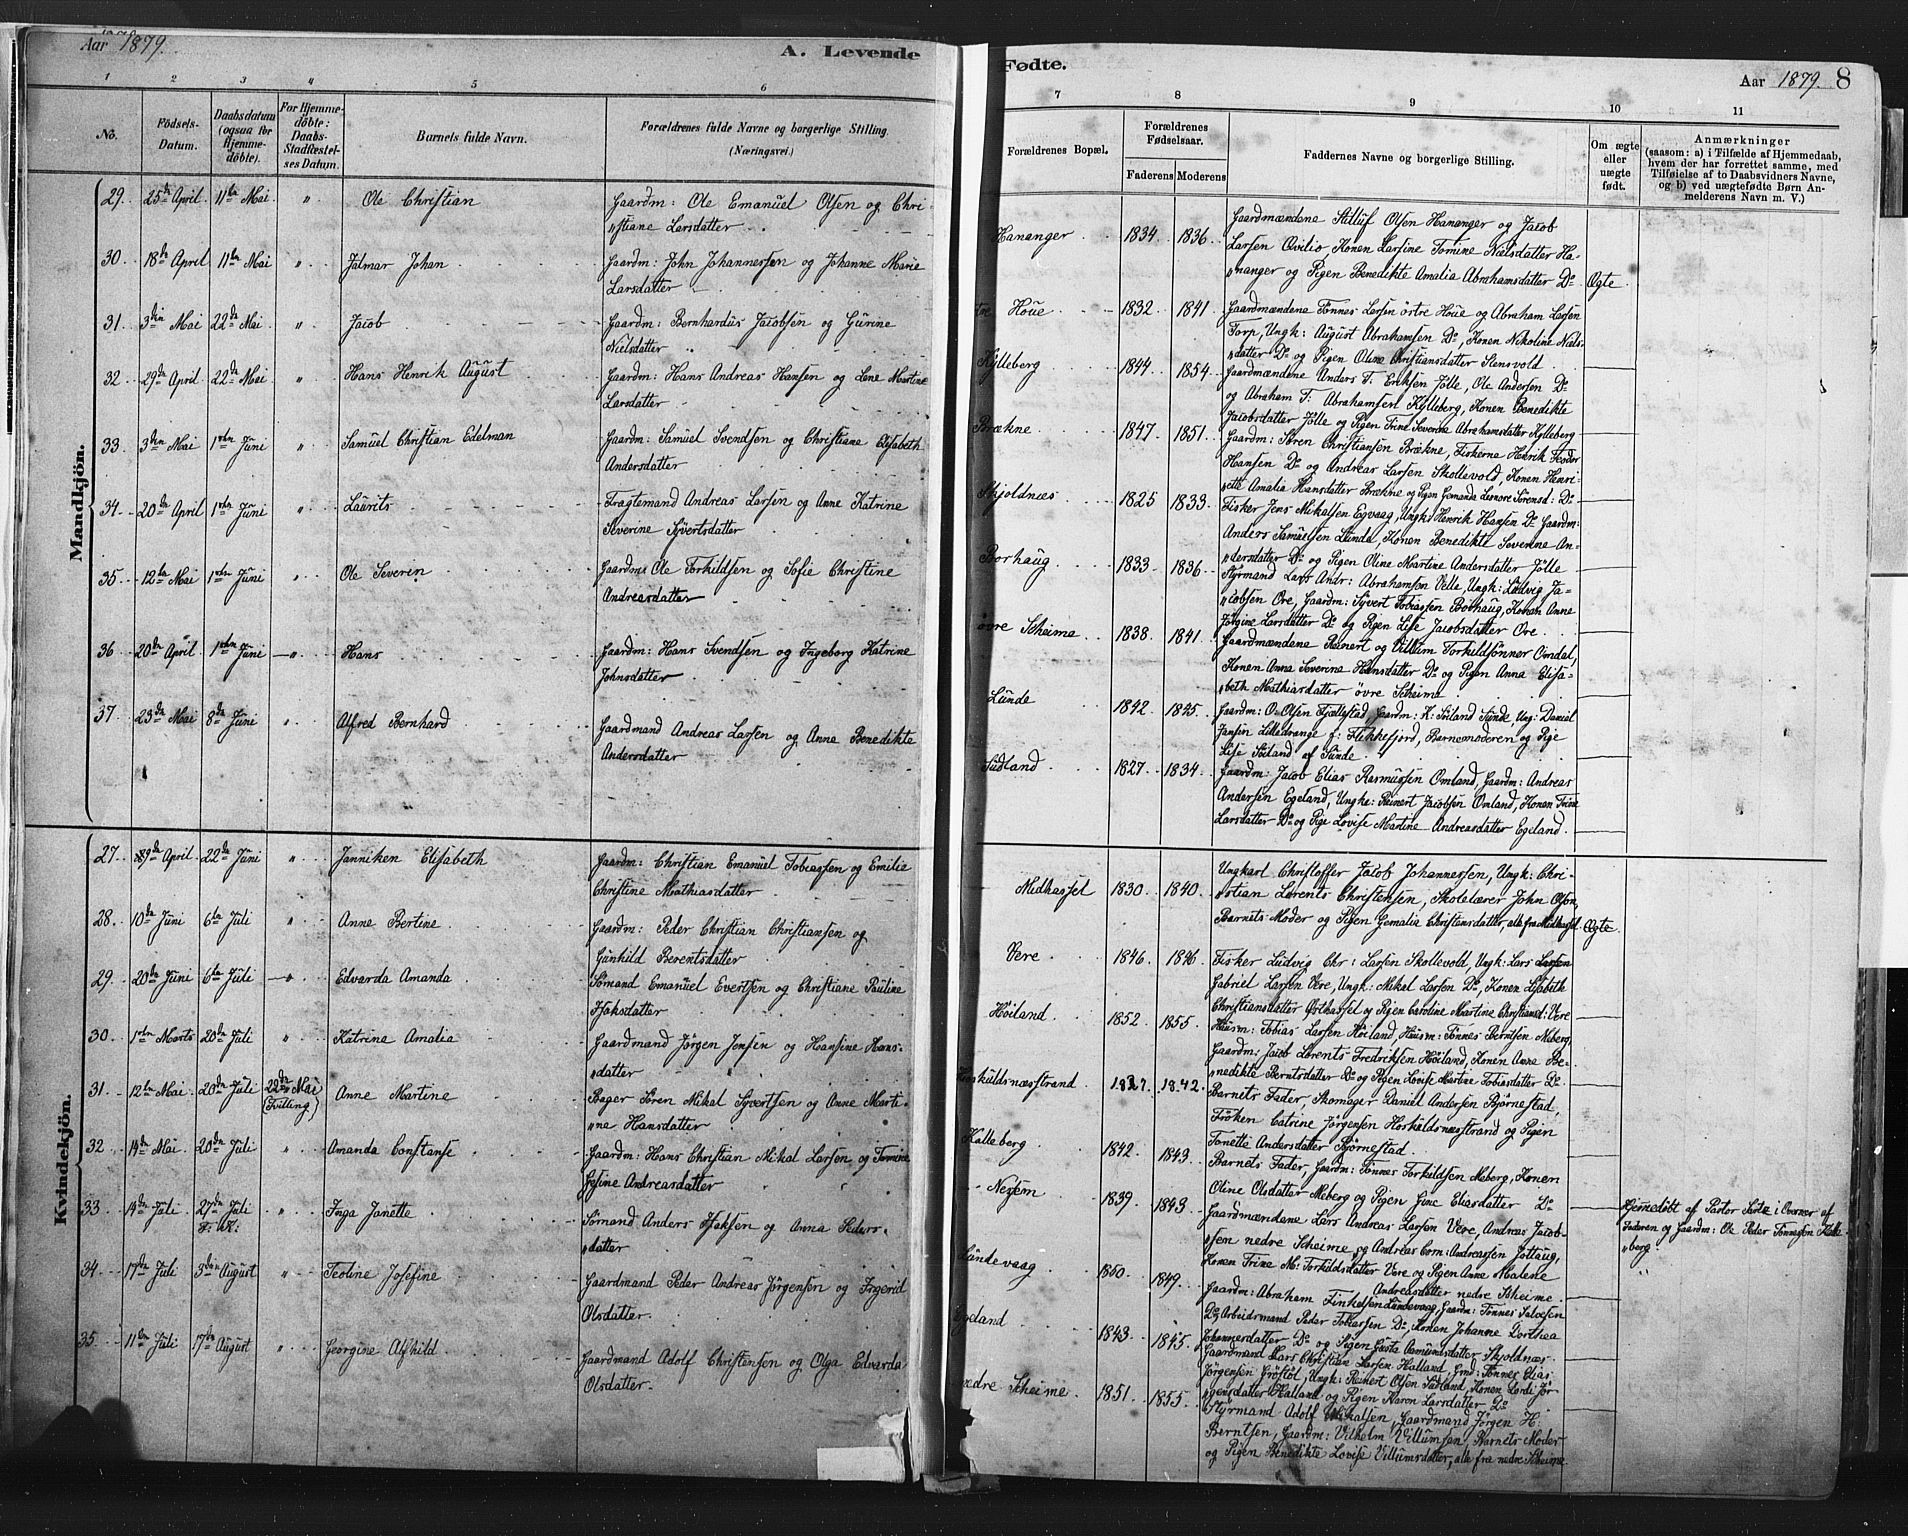 Aar 1879.
A. Levende
1 2 3 4 5 6
No.
Fødsels-Datum.
Daabsdatum (ogsaa for Hjemmedöbte).
For Hjemmedöbte: Daabs-Stadfæstelses Datum.
Barnets fulde Navn.
Forældrenes fulde Navne og borgerlige Stilling. (Næringsvei.)
Mandkjön.
29. 25de April 11te Mai " Ole Christian Gaardm: Ole Emanuel Olsen og Chri-
"stiane Larsdatter
30 18de April 11te Mai " Jalmar Johan Gaardm: John Johannessen og Johanne Marie
Larsdatter
31 3die Mai 22de Mai " Jacob Gaardm: Bernhardus Jacobsen og Gurine
Nielsdatter
32 29de April 22de Mai " Hans Henrik August Gaardm: Hans Andreas Hansen og Lene Martine
Larsdatter
33 3die Mai 1ste Juni " Samuel Christian Edelman Gaardm: Samuel Svendsen og Christiane Elisabeth
Andersdatter
34 20de April 1ste Juni " Laurits Fragtemand Andreas Larsen og Anne Katrine
Severine Syvertsdatter
35 12te Mai 1ste Juni " Ole Severin Gaardm: Ole Torkildsen og Sofie Christine
Andreasdatter
36 20de April 1ste Juni " Hans Gaardm: Hans Svendsen og Ingeborg Katrine
Johnsdatter
37 23de Mai 8de Juni " Alfred Bernhard Gaardmand Andreas Larsen og Anne Benedikte
Andersdatter
Kvindekjön.
27 29de April 22de Juni " Janniken Elisabeth Gaardm: Christian Emanuel Tobiassen og Emilie
Christine Mathiasdatter
28 10de Juni 6te Juli " Anne Bertine Gaardm: Peder Christian Christiansen og
Gunhild Berentsdatter
29 20de Juni 6te Juli " Edvarda Amanda Sömand Emanuel Evertsen og Christiane Pauline
Isaksdatter
30 1ste Marts 20de Juli " Katrina Amalia Gaardmand Jörgen Jensen og Hansine Hans-
"datter
31 12te Mai 20de Juli 22de Mai (Tvilling) Anne Martine Bager Sören Mikal Syvertsen og Anne Marti-
"ne Hansdatter
32 14de Mai 20de Juli " Amanda Constanse Gaardm: Hans Christian Mikal Larsen og Tomine
Gesine Andreasdatter
33 14de Juli 27de Juli " Inga Janette Sömand Anders Isaksen og Anna Peders-
"datter
34 17de Juli 3die August " Teoline Josefine Gaardmand Peder Andreas Jörgensen og Ingerid
Olsdatter
35 11te Juli 17de August " Georgine Alfhild Gaardmand Adolf Christensen og Olga Edvarda
Olsdatter
Fødte.
Aar 1879. 8
7 8 9 10 11
Forældrenes Bopæl.
Forældrenes Fødselsaar.
Faderens Moderens
Faddernes Navne og borgerlige Stilling.
Om ægte eller uægte født.
Anmærkninger
(saasom: a) i Tilfælde af Hjemmedaab,
hvem der har forrettet samme, med
Tilføielse af to Daabsvidners Navne,
og b) ved uægtefødte Børn An-
melderens Navn m. V.)
Hananger 1834 1836 Gaardmændene Olsen Hananger og Jacob
Larsen Qvilio, Konen Larsine Tomine Nielsdatter Ha-
"nanger og Pigen Benedikte Amalia Abrahamsdatter Do Ægte
Houe 1832 1841 Gaardmændene Tönnes Larsen östre Houe og Abraham Larsen
Torp, Ungk: August Abrahamsen Do, Konen Nikoline Niels-
"datter Do og Pigen Oline Christiansdatter Stensvold
Kylleberg 1844 1854 Gaardmændene Anders T. Eriksen Jölle, Ole Andersen Do
og Abraham T. Abrahamsen Kylleberg, Konen Benedikte
Jacobsdatter Jölle og Pigen Trine Severine Abrahamsdatter Kylleberg
Brækne 1847 1851 Gaardm: Sören Christiansen Brækne, Fiskerne Henrik Teodor
Hansen Do og Andreas Larsen Skollevold, Konen Henri-
"ette Amalia Hansdatter Brækne og Pigen Leonore Sörensd: Do
Skjoldnæs 1825 1833 Fisker Jens Mikalsen Egvaag, Ungk: Henrik Hansen Do Gaardm:
Anders Samuelsen Lunde, Konen Benedikte Severine An-
"dersdatter Do og Pigen Oline Martine Andersdatter Jölle
Borhaug 1833 1836 Styrmand Lars Andr: Abrahamsen Velle, Ungk: Ludvig Ja-
"cobsen Ore, Gaardm: Syvert Tobiassen Borhaug, Konen Anne
Jörgine Larsdatter Do og Pigen Lise Jacobsdatter Ore
övre Scheime 1838 1841 Gaardmændene Reinert og Villum Torkildsönner Omdal,
Konen Anna Severina Hansdatter Do og Pigen Anna Elisa-
"beth Mathiasdatter övre Scheime
Lunde 1842 1845 Gaardm: O. Olsen Fjellestad, Gaardm: K: Sunde, Ung: Daniel
Jansen Lilledrange f: Flekkefjord, Barnemoderen og Pige
Lise af Sunde
Sudland 1827 1834 Gaardm: Jacob Elias Rasmussen Omland, Gaardm: Andreas
Andersen Egeland, Ungk: Reinert Jacobsen Omland, Konen Trine
Larsdatter Do og Pige Lovise Martine Andreasdatter Egeland
Midhassel 1830 1840 Ungkarl Christoffer Jacob Johannessen, Ungk: Chri-
"stian Lorents Christensen, Skolelærer John Olsen,
Barnets Moder og Pigen Gemalia Christensdatter, alle fra Midhassel Ægte
Vere 1846 1846 Fisker Ludvig Chr: Larsen Skollevold, Ungk: Lars
Gabriel Larsen Vere, Ungk: Mikal Larsen Do, Konen Lisabeth
Christiansdatter Östhassel og Pigen Caroline Martine Christiansd: Vere
Höiland 1852 1855 Huusm: Tobias Larsen Höiland, Huusm: Tönnes Berntsen Meberg,
Gaardm: Jacob Lorents Fredriksen Höiland, Konen Anna Be-
"nedikte Berntsdatter Do og Pigen Lovise Martine Tobiasdatter Do
1827 1842 Barnets Fader, Skomager Daniel Andersen Björnestad,
Fröken Catrine Jörgensen Hoskuldsnæsstrand og Pigen
Tonette Andersdatter Björnestad
Kalleberg 1842 1843 Barnets Fader, Gaardm: Tönnes Torkildsen Meberg, Konen
Oline Olsdatter Meberg og Pigen Eliasdatter Do
Nesem 1839 1843 Gaardmændene Lars Andreas Larsen Vere, Andreas Jacob-
"sen nedre Scheime og Andreas Corn: Andreassen Jottaug,
Konen Trine M: Torkildsdatter Vere og Pigen Anne Malene
Andreasdatter nedre Scheime
Hjemmedöbt af Pastor i Overvær af
Faderen og Gaardm: Ole Peder Tönnessen Kalle-
"berg
Lundevaag 1849 Gaardm: Abraham Finkelsen Lundevaag, Gaardm: Tönnes Salvesen
Do, Arbeidsmand Peder Tobiassen Do, Konen Johanne Dorthea
Johannesdatter Do og Pigen Asmundsdatter Skjoldnæs
1843 1845 Gaardmand Lars Christian Larsen Halland, Grmd: Tönnes Elias
Jörgensen Gröstöl, Ungk: Reinert Olsen Sudland, Konen Jör-
"gensdatter Halland og Pigen Karen Larsdatter Do
nedre Scheime 1851 1855 Styrmand Adolf Mikalsen, Gaardmand Jörgen H:
Berntsen, Gaardm: Vilhelm Villumsen, Barnets Moder
og Pigen Benedikte Lovise Villumsdatter, alle fra nedre Scheime